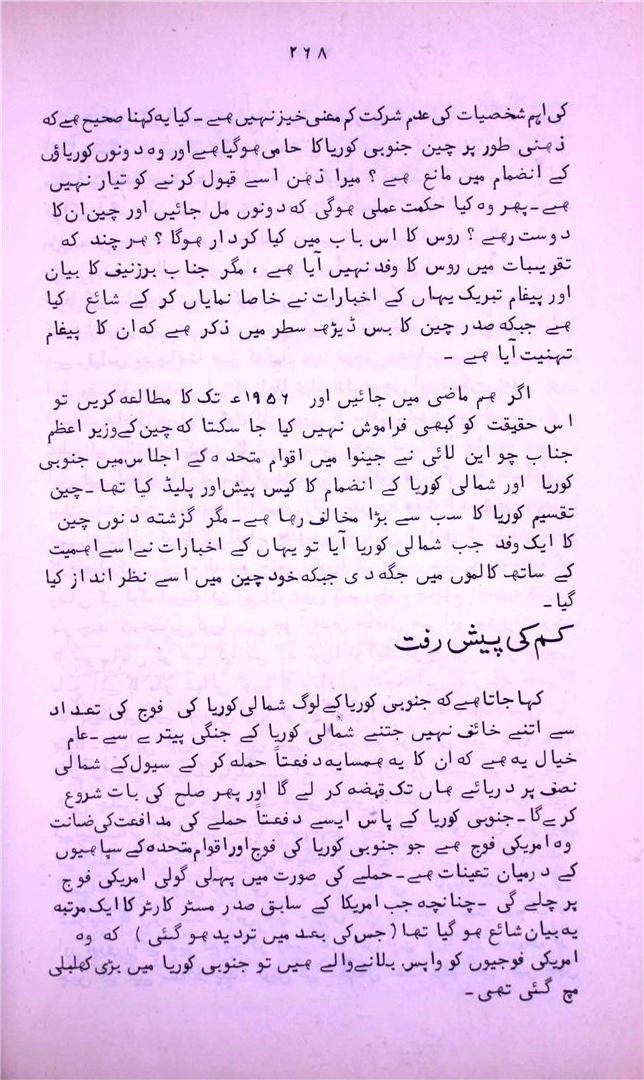 ۲۶۸
کی اہم شخصیات کی عدم شرکت کم معنی خیز نہیں ہے ۔ کیا یہ کہنا صحیح ہے کہ
ذہنی طور پر چین جنوبی کوریا کا حامی ہو گیا ہے اور وہ دونوں کوریاؤں
کے انضمام میں مانع ہے ؟ میرا ذہن اسے قبول کرنے کو تیار نہیں
ہے ۔ پھر وہ کیا حکمت عملی ہوگی کہ دونوں مل جائیں اور چین ان کا
دوست رہے ؟ روس کا اس باب میں کیا کردار ہوگا ؟ ہر چند کہ
تقریبات میں روس کا وفد نہیں آیا ہے ، مگر جناب برزنیف کا بیان
اور پیغام تبریک یہاں کے اخبارات نے خاصا نمایاں کر کے شائع کیا
ہے جبکہ صدر چین کا بس ڈیڑھ سطر میں ذکر ہے کہ ان کا پیغام
تہنیت آیا ہے ۔
اگر ہم ماضی میں جائیں اور ۱۹۵۶ء تک کا مطالعہ کریں تو
اس حقیقت کو کبھی فراموش نہیں کیا جا سکتا کہ چین کے وزیر اعظم
جناب چو این لائی نے جینوا میں اقوام متحدہ کے اجلاس میں جنوبی
کوریا اور شمالی کوریا کے انضمام کا کیس پیش اور پلیڈ کیا تھا ۔ چین
تقسیم کوریا کا سب سے بڑا مخالف رہا ہے ۔ مگر گزشتہ دنوں چین
کا ایک وفد جب شمالی کوریا آیا تو یہاں کے اخبارات نے اسے اہمیت
کے ساتھ کالموں میں جگہ دی جبکہ خود چین میں اسے نظر انداز کیا
گیا ۔
کم کی پیش رفت
کہا جاتا ہے کہ جنوبی کوریا کے لوگ شمالی کوریا کی فوج کی تعداد
سے اتنے خائف نہیں جتنے شمالی کوریا کے جنگی پیترے سے ۔ عام
خیال یہ ہے کہ ان کا یہ ہمسایہ دفعتاً حملہ کر کے سیول کے شمالی
نصف پر دریائے ہاں تک قبضہ کر لے گا اور پھر صلح کی بات شروع
کرے گا ۔ جنوبی کوریا کے پاس ایسے دفعتاً حملے کی مدافعت کی ضمانت
وہ امریکی فوج ہے جو جنوبی کوریا کی فوج اور اقوام متحدہ کے سپاہیوں
کے درمیان تعینات ہے ۔ حملے کی صورت میں پہلی گولی امریکی فوج
پر چلے گی ۔ چنانچہ جب امریکا کے سابق صدر مسٹر کارٹر کا ایک مرتبہ
یہ بیان شائع ہو گیا تھا ( جس کی بعد میں تردید ہو گئی ) کہ وہ
امریکی فوجیوں کو واپس بلانے والے ہیں تو جنوبی کوریا میں بڑی کھلبلی
مچ گئی تھی ۔